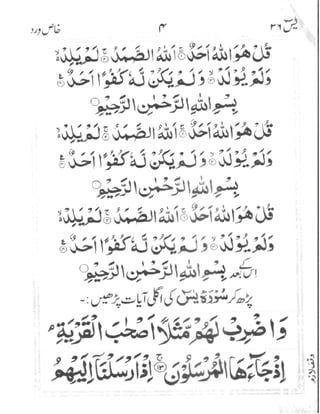 یٰسٓ ۳۶ ۴ خاص ورد
قُلْ هُوَ اللّٰهُ اَحَدٌ ۚ اَللّٰهُ الصَّمَدُ ۚ لَمْ یَلِدْ ۙ
وَلَمْ یُوْلَدْ ۙ وَلَمْ یَكُنْ لَّهٗ كُفُوًا اَحَدٌ ۠
بِسْمِ اللّٰهِ الرَّحْمٰنِ الرَّحِیْمِ ○
قُلْ هُوَ اللّٰهُ اَحَدٌ ۚ اَللّٰهُ الصَّمَدُ ۚ لَمْ یَلِدْ ۙ
وَلَمْ یُوْلَدْ ۙ وَلَمْ یَكُنْ لَّهٗ كُفُوًا اَحَدٌ ۠
بِسْمِ اللّٰهِ الرَّحْمٰنِ الرَّحِیْمِ ○
قُلْ هُوَ اللّٰهُ اَحَدٌ ۚ اَللّٰهُ الصَّمَدُ ۚ لَمْ یَلِدْ ۙ
وَلَمْ یُوْلَدْ ۙ وَلَمْ یَكُنْ لَّهٗ كُفُوًا اَحَدٌ ۠
اس کے بعد بِسْمِ اللّٰهِ الرَّحْمٰنِ الرَّحِیْمِ ○
پڑھ کر سُوْرَةُ یٰسٓ کی اگلی آیات پڑھیں :-
وَاضْرِبْ لَهُمْ مَّثَلًا اَصْحٰبَ الْقَرْیَةِ ۘ
اِذْ جَآءَهَا الْمُرْسَلُوْنَ ۚ ﴿۱۳﴾ اِذْ اَرْسَلْنَاۤ اِلَیْهِمُ
وقف لازم